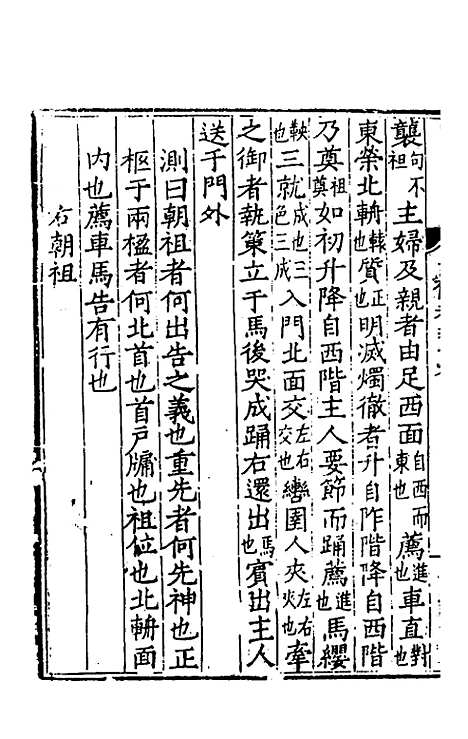 襲句不袒主婦及親者由足西面自西而東也薦進車直對也
東榮北輈轅質正也明滅燭徹者升自阼階降自西階
乃奠祖奠如初升降自西階主人要節而踊薦進也馬纓
鞅也三就成也三色三成入門北面交左右交也轡圉人夾左右夾也牽
之御者執策立于馬後哭成踊右還出馬也賓出主人
送于門外
測曰朝祖者何出告之義也重先者何先神也正
柩于兩楹者何北首也首戶牖也祖位也北輈面
内也薦車馬告有行也
右朝祖